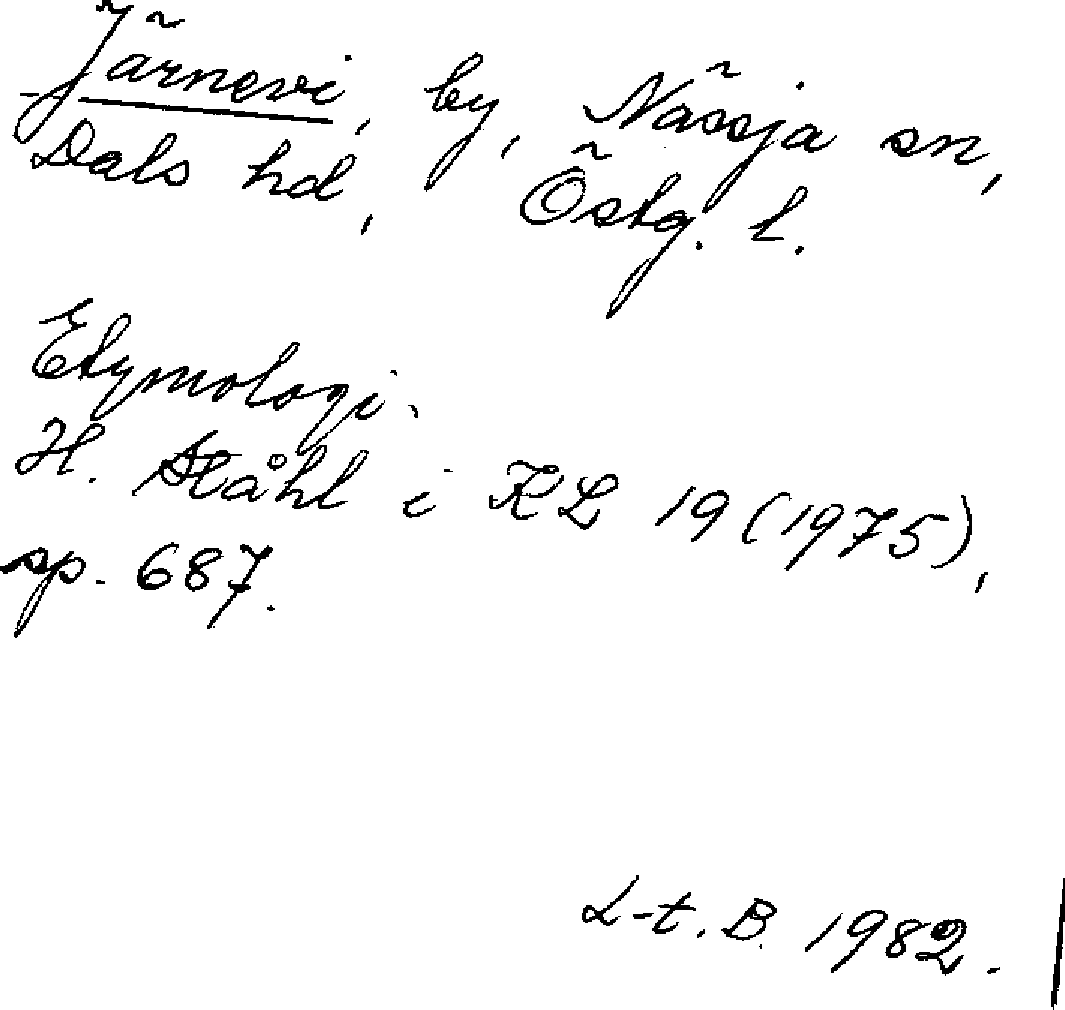 Järnevi, by, Nässja sn,
Dals hd, Östg. l.
Etymologi.
H. Ståhl i KL 19 (1975),
sp. 687.
L-t. B. 1982.